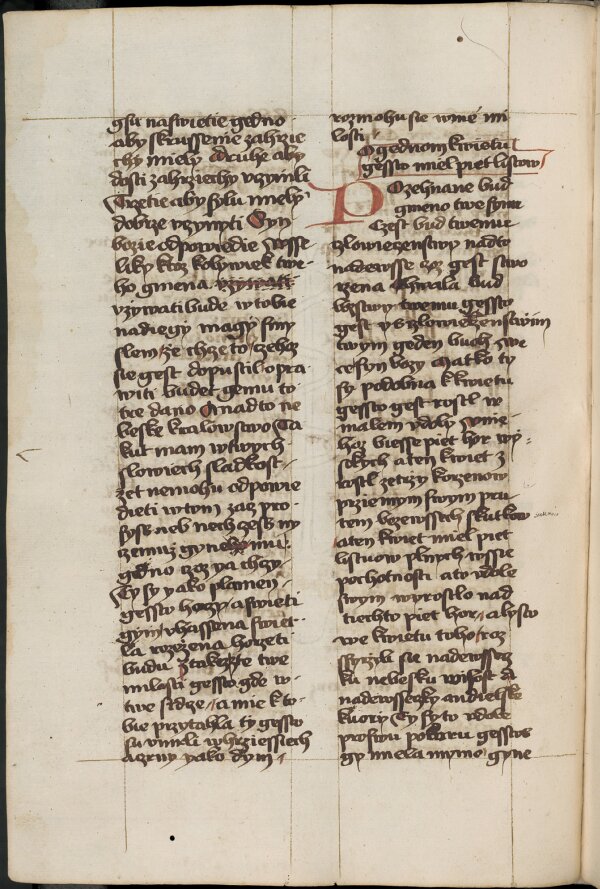 gsu naswietie gedno
aby skrussenie zahrzie
chy miely Druhe aby
dosti zahrziechy vczinili
Trzetie aby sylu mely
dobrze vczynyti Syn
bozie odpowiedie wsse
liky ktoz kolywiek twe
ho gmena vzywati
vzywati bude w tobie
nadiegy magy smy
slem ze chze to czehoz
sie gest dopustil opra
witi budet gemu to
tce dano A nadto ne
beske kralowstwo Ta
kut mam w twych
slowiech sladkost
zet nemohu odpowie
dieti w tom zaz pro
syss neb nech zess ny
czemuz gyne mu
gedno czoz ya chzy
Ty sy yako plamen
gessto horzy a swieti
gym vhassena swiet
la rozzena horzeti
budu z takezzte twe
milosti gessto gde w
twe srdze a mie k to
bie przytahla ty gessto
su vmrli w hrziessiech
a czrny yako dym
rozmohu sie w me mi
losti
O gednom kwietu
gessto miel piet listow
Pozehnane bud
gmeno twe synu
Czest bud twemu
czlowieczenstwy nadto
nadewsse czoz gest stwo
rzena Chwala bud
bozstwy twemu gessto
gest v s czlowieczenstwym
twym geden buoh zwe
ce syn bozy Matko ty
sy podobna k kwietu
gessto gest rostl w
malem vdoly w nie
hoz biesse piet hor wy
sokych a ten kwiet z
rostl ze trzy korzenow
przie mym swym pru
tem bezewssech sukow
a ten kwiet miel piet
listuow plnych wssie
pochotnosti a to vdole
swym wyrostlo nad
tiechto piet hor a lysto
we kwietu toho roz
ssyrzyli sie nadewssicz
ku nebesku wysost A
nadewsseczky andielske
kuory Ty sy to vdole
prosiwu pokoru gessto
gy miela mymo gyne